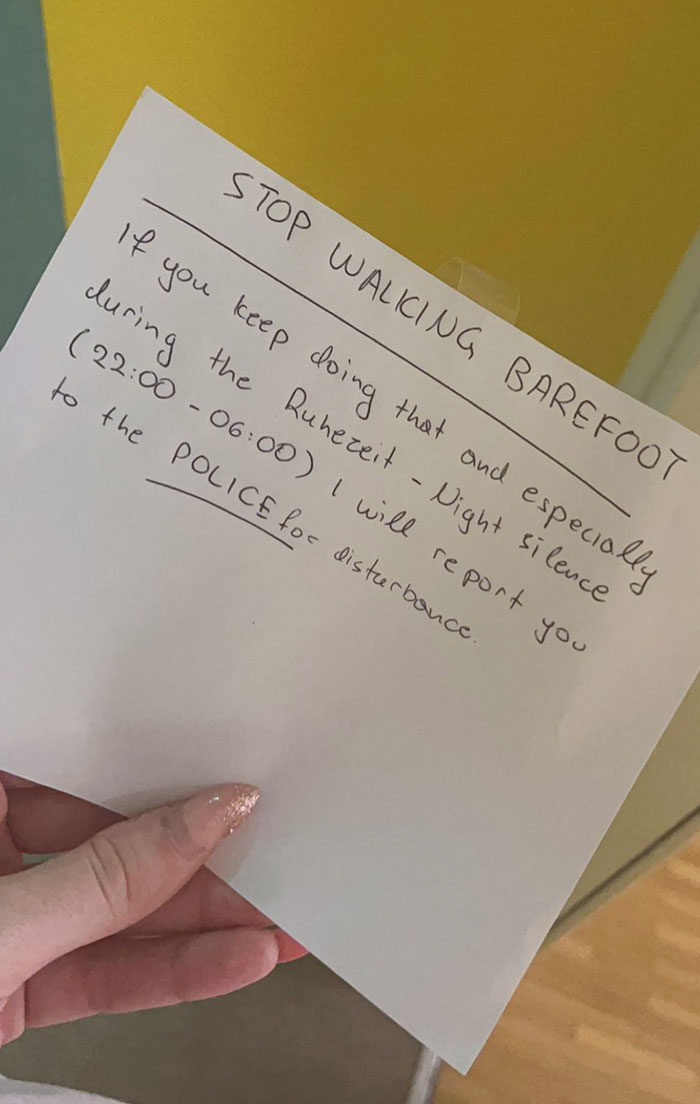 STOP WALKING BAREFOOT
If you keep doing that and especially
during the Ruhezeit - Night silence
(22:00 - 06:00) I will report you
to the POLICE for disturbance.